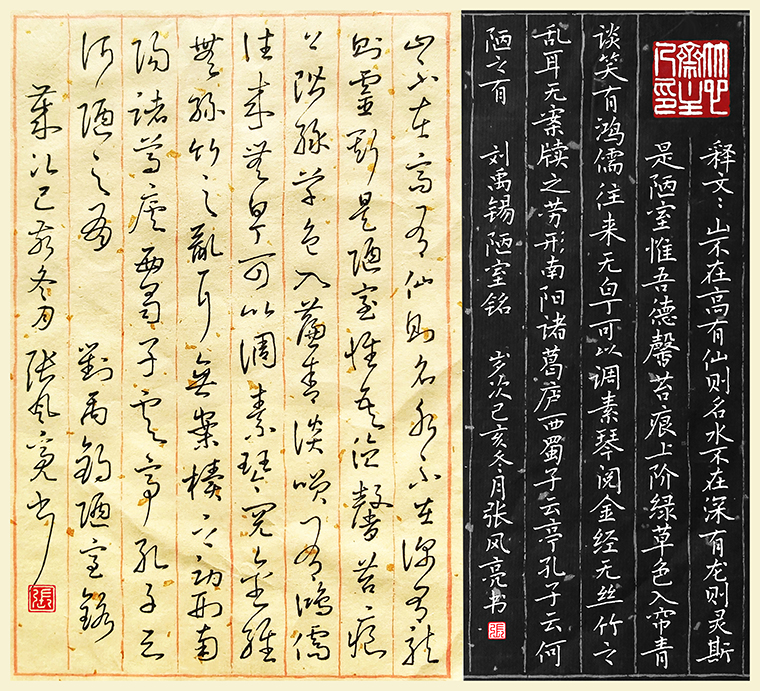 山不在高有仙则名水不在深有龍
则靈斯是陋室惟吾德馨苔痕
上階綠草色入簾青談咲有鴻儒
往来無白丁可以调素琴閲金經
無絲竹之亂耳無案牘之勞形南
陽諸葛廬西蜀子雲亭孔子云
何陋之有 劉禹錫陋室銘
歲次己亥冬月 张风亮书
張
竹心齋主人印
释文：山不在高有仙则名水不在深有龙则灵斯
是陋室惟吾德馨苔痕上阶绿草色入帘青
谈笑有鸿儒往来无白丁可以调素琴阅金经无丝竹之
乱耳无案牍之劳形南阳诸葛庐西蜀子云亭孔子云何
陋之有 刘禹锡陋室铭 岁次己亥冬月张风亮书
張